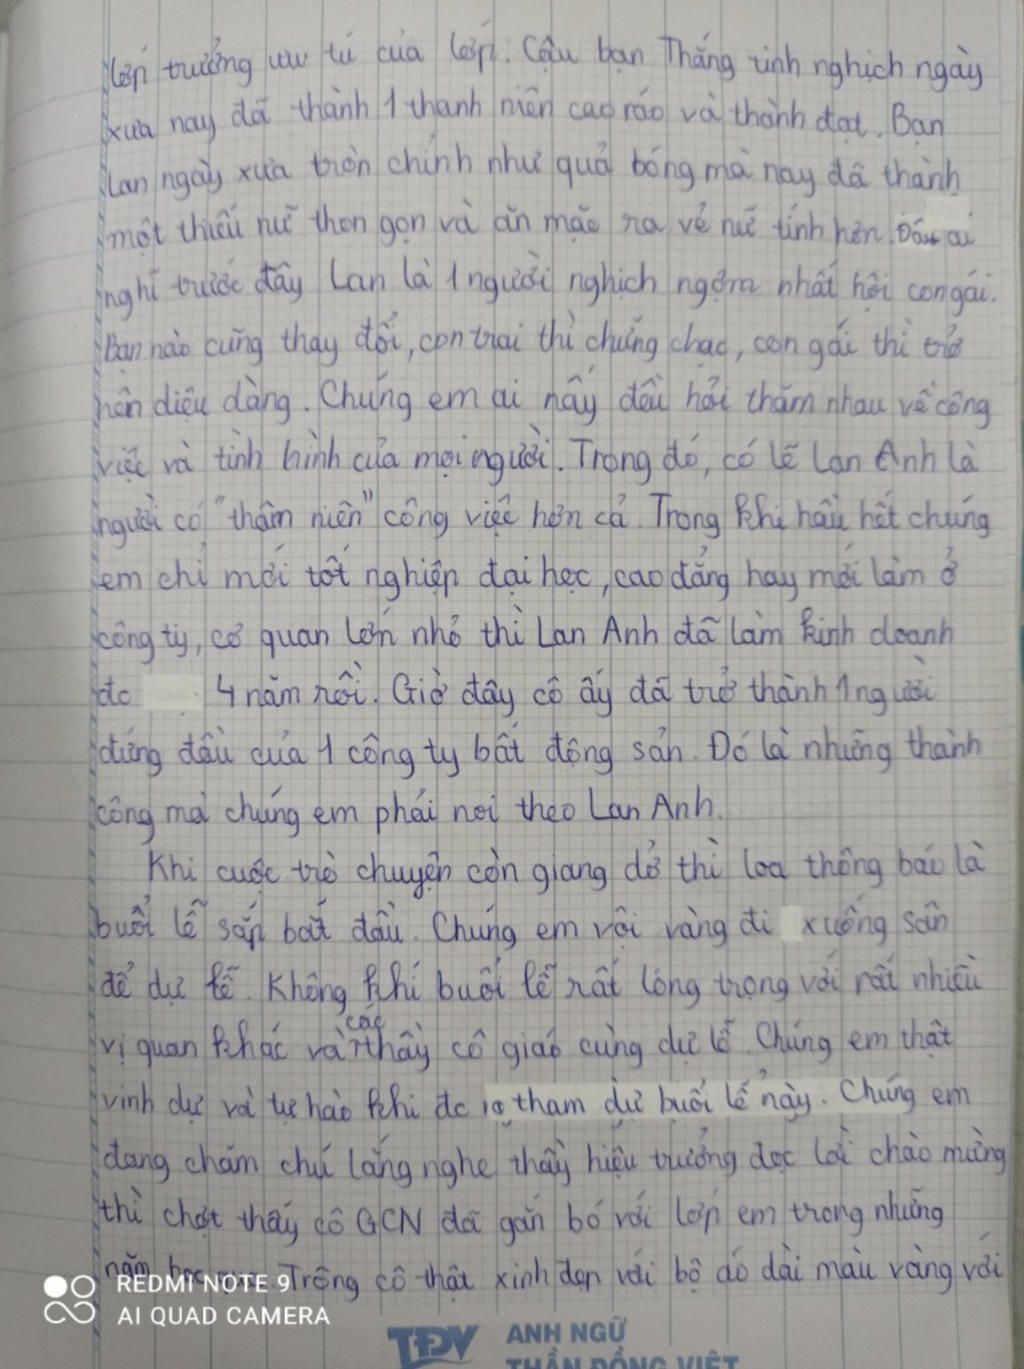 lớp trưởng ưu tú của lớp. Cậu bạn Thắng tinh nghịch ngày
xưa nay đã thành 1 thanh niên cao ráo và thành đạt. Bạn
Lan ngày xưa tròn chỉnh như quả bóng mà nay đã thành
một thiếu nữ thon gọn và ăn mặc ra vẻ nữ tính hơn. Đâu ai
nghĩ trước đây Lan là 1 người nghịch ngợm nhất hội con gái.
Bạn nào cũng thay đổi, con trai thì chững chạc, con gái thì trở
nên diệu dàng. Chúng em ai nấy đều hỏi thăm nhau về công
việc và tình hình của mọi người. Trong đó, có lẽ Lan Anh là
người có "thâm niên" công việc hơn cả. Trong khi hầu hết chúng
em chỉ mới tốt nghiệp đại học, cao đẳng hay mới làm ở
công ty, cơ quan lớn nhỏ thì Lan Anh đã làm kinh doanh
đc 4 năm rồi. Giờ đây cô ấy đã trở thành 1 người
đứng đầu của 1 công ty bất động sản. Đó là những thành
công mà chúng em phải noi theo Lan Anh.
Khi cuộc trò chuyện còn giang dở thì loa thông báo là
buổi lễ sắp bắt đầu. Chúng em vội vàng đi xuống sân
để dự lễ. Không khí buổi lễ rất lóng trọng với rất nhiều
vị quan khác và các thầy cô giáo cùng dự lễ. Chúng em thật
vinh dự và tự hào khi đc tham dự buổi lễ này. Chúng em
đang chăm chú lắng nghe thầy hiệu trưởng đọc lời chào mừng
thì chợt thấy cô GCN đã gắn bó với lớp em trong những
năm học Trông cô thật xinh đẹp với bộ áo dài màu vàng với
REDMI NOTE 9
AI QUAD CAMERA
TĐV ANH NGỮ
THẦN ĐỒNG VIỆT